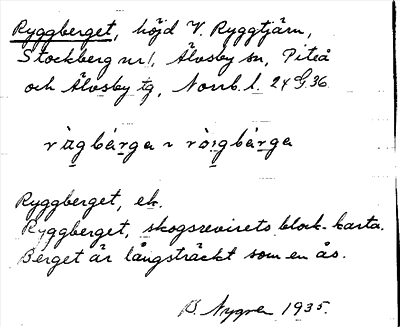 Ryggberget, höjd V. Ryggtjärn,
Stockberg nr 1, Älvsby sn, Piteå
och Älvsby tg, Norrb. l. 24 G. 36
Ryggberget, ek.
Ryggberget, skogsrevirets block-karta.
Berget är långsträckt som en ås.
B. Nygren 1935.